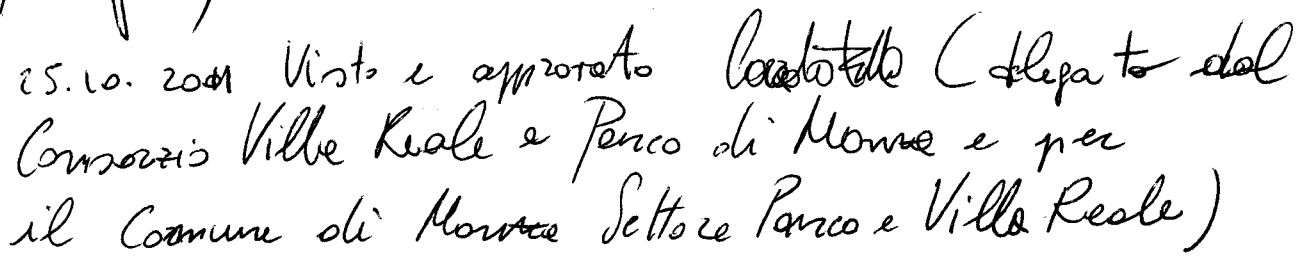 25.10.2011 Visto e approvato (delegato dal
Consorzio Villa Reale e Parco di Monza e per
il Comune di Monza Settore Parco e Villa Reale)